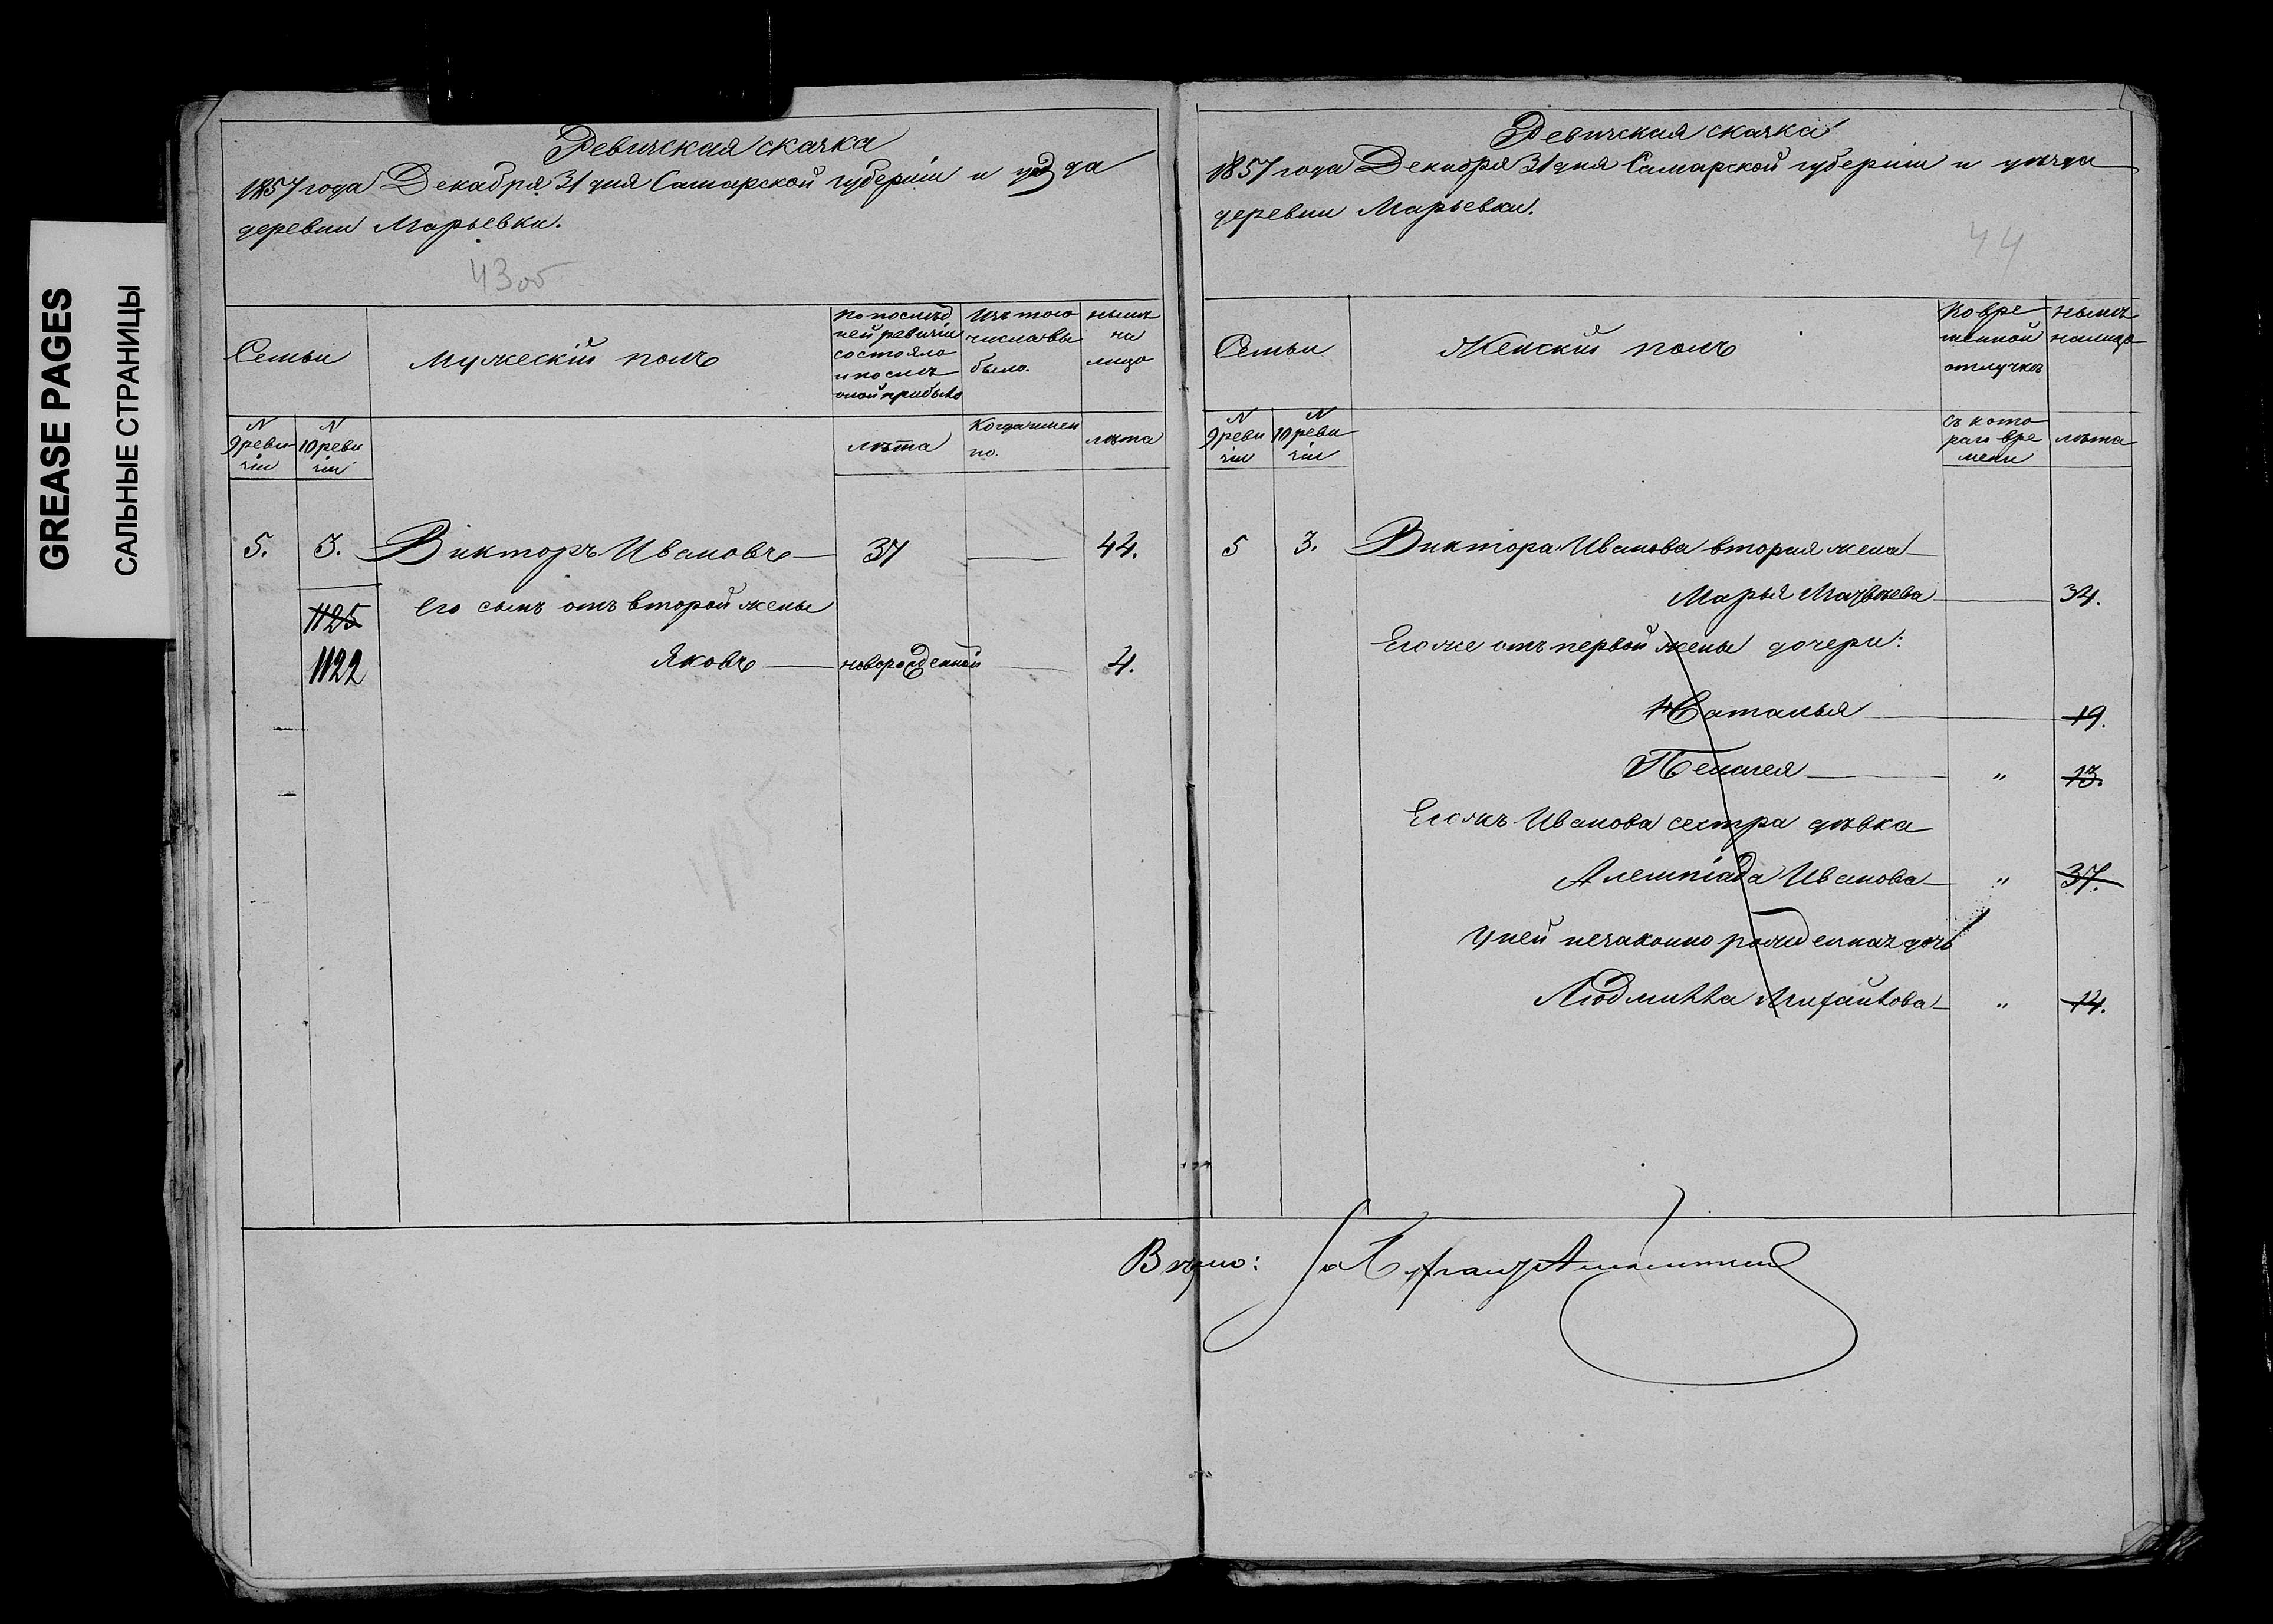 GREASE PAGES
САЛЬНЫЕ СТРАНИЦЫ
Ревизская сказка
1857 года Декабря 31 дня Самарской губерніи и уѣзда
деревни Марьевки.
43 об
Семьи
Мужескій полъ
По послѣд
ней ревизіи
состояло
и послѣ
оной прибыло
Изъ того
числа вы
было.
Нынѣ
на
лицо
N
9 реви
зіи
N
10 реви
зіи
лѣта
Когда имен
но.
лѣта
5. 3. Викторъ Ивановъ 37 44.
1125
Его сынъ отъ второй жены
1122 Яковъ новорожденный 4.
Ревизская сказка
1857 года Декабря 31 дня Самарской губерніи и уѣзда
деревни Марьевки.
44
Семьи
Женскій полъ
Во вре
менной
отлучкѣ
Нынѣ
налицо
N
9 реви
зіи
N
10 реви
зіи
съ кото
раго вре
мени
лѣта
5 3. Виктора Иванова вторая жена
Марья Матвѣева 34.
Его же отъ первой жены дочери:
Наталья 19.
Пелагея " 13.
Его жъ Иванова сестра дѣвка
Алемпіада Иванова " 37.
У ней незаконно рожденная дочь
Людмилла Михайлова " 14.
Вѣрно: